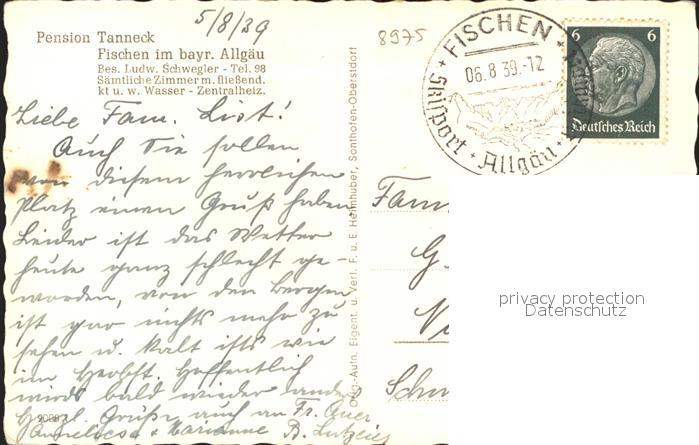 5/8/39
8975
Pension Tanneck
Fischen im bayr. Allgäu
Bes. Ludw. Schwegler - Tel. 98
Sämtliche Zimmer m. fließend.
kt u. w. Wasser - Zentralheiz.
Liebe Fam. List!
Auch Sie sollen
von diesem herrlichen
Platz einen Gruß haben
Leider ist das Wetter
heute ganz schlecht ge-
worden, von den Bergen
ist gar nichts mehr zu
sehen u. kalt ists wie
im Herbst. Hoffentlich
wirds bald wieder anders
Herzl. Grüße auch an Fr. Auer
Marianne
Orig.-Aufn. Eigent. u. Verl. F. u. E. Heimhuber, Sonthofen-Oberstdorf
FISCHEN
06.8.39.-12
Skisport Allgäu
6 6
Deutsches Reich
Fam
G
Schw
privacy protection
Datenschutz